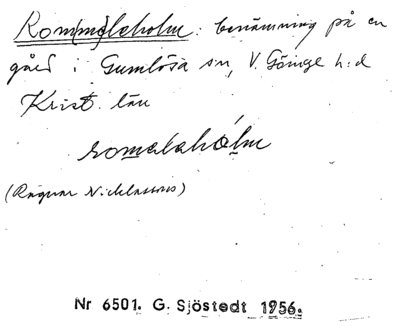 Rom(m)eleholm: benämning på en
gård i Gumlösa sn, V. Göinge h:d
Krist. län
romelehólm
(Ragnar Nicklassons)
Nr 6501. G. Sjöstedt 1956.